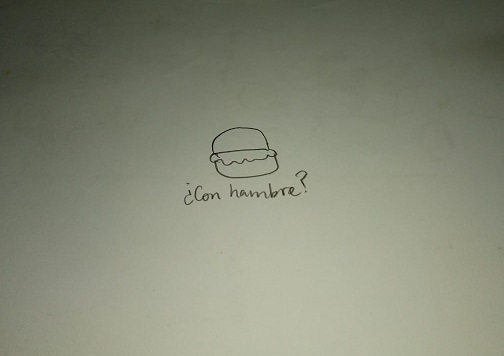 ¿Con hambre?